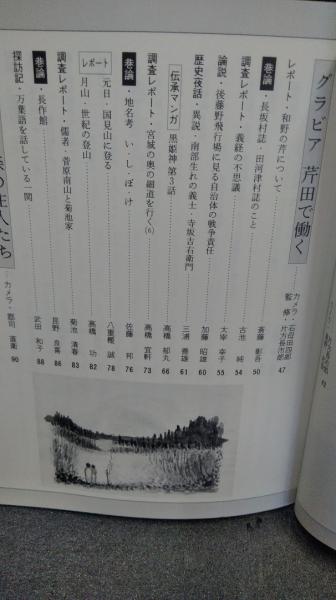 グラビア 芹田で働く
カメラ・石母田四郎
監修・片方長治郎
レポート・和野の芹について 斎藤彰吾 47
巷論・長坂村誌・田河津村誌のこと 50
調査レポート・義経の不思議 古池純 54
論説・後藤野飛行場に見る自治体の戦争責任 太宰幸子 55
歴史夜話・異説・南部生れの義士・寺坂吉右衛門 加藤昭雄 60
伝承マンガ 黒姫神 第3話 三浦善雄 61
調査レポート・宮城の奥の細道を行く(6) 高橋郁丸 66
巷論・地名考 い・し・ぼ・け 高橋宜軒 73
レポート
元日・国見山に登る 佐藤邦 76
月山・世紀の登山 八重樫誠 78
調査レポート・儒者・菅原南山と菊池家 高橋功 82
巷論・長作館 菊池清春 83
探訪記・万葉語を話している一関 昆野良喜 86
武田和子 88
住人たち
カメラ・ 直衛 90